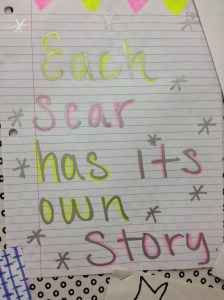 Each
Scar
has its
own
Story